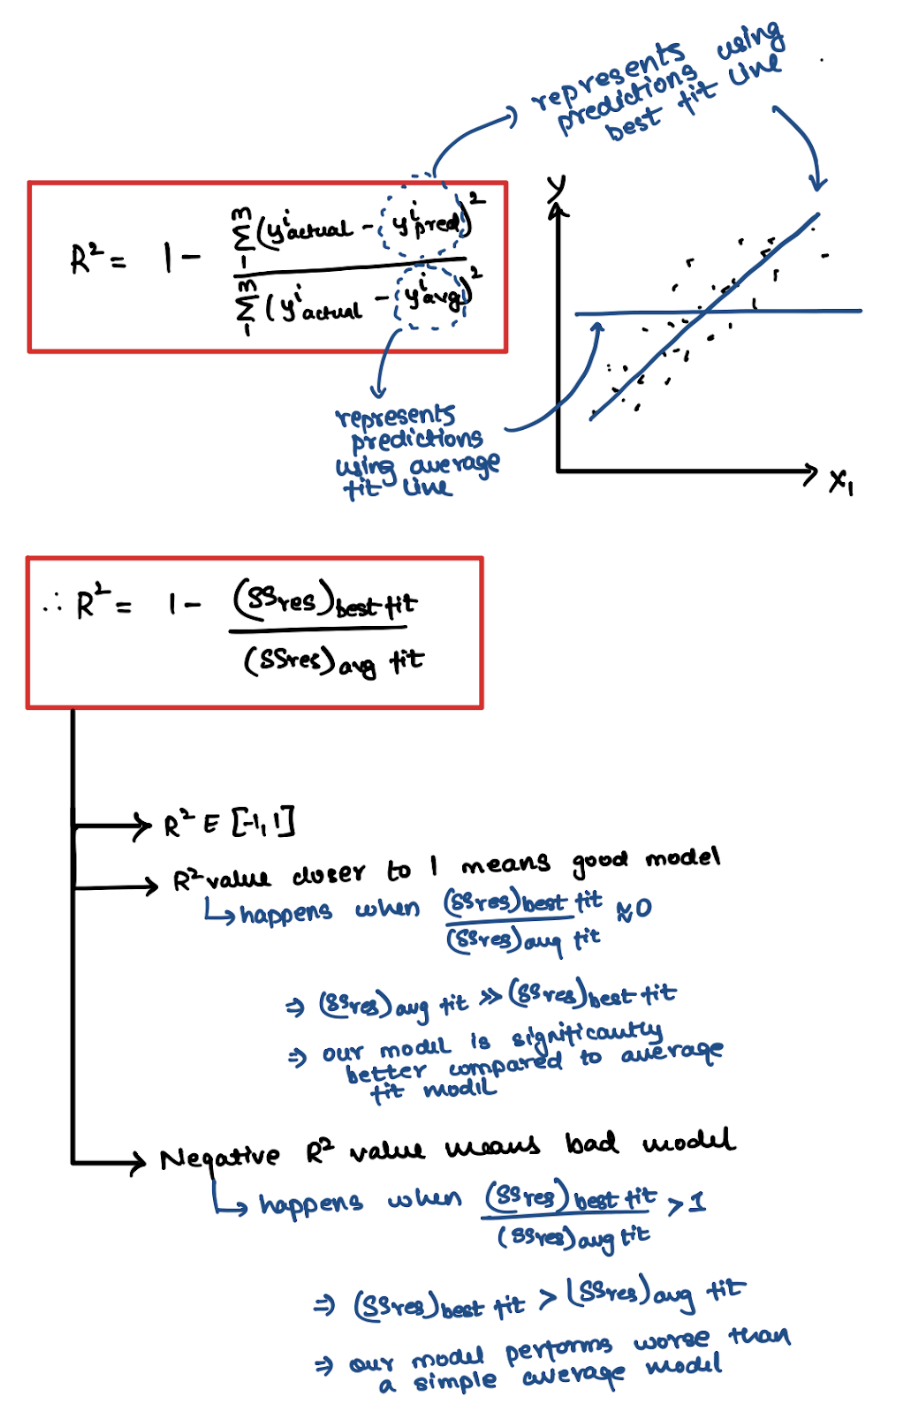 represents
predictions using
best fit line
R² = 1 - \frac{\sum_{1}^{m}(y^i_{actual} - y^i_{pred})^2}{\sum_{1}^{m}(y^i_{actual} - y^i_{avg})^2}
represents
predictions
using average
fit line
y
x₁
∴ R² = 1 - \frac{(SSres)_{best fit}}{(SSres)_{avg fit}}
R² ∈ [-1, 1]
R² value closer to 1 means good model
↳ happens when \frac{(SSres)_{best fit}}{(SSres)_{avg fit}} ≈ 0
⇒ (SSres)_{avg fit} >> (SSres)_{best fit}
⇒ our model is significantly
better compared to average
fit model
Negative R² value means bad model
↳ happens when \frac{(SSres)_{best fit}}{(SSres)_{avg fit}} > 1
⇒ (SSres)_{best fit} > (SSres)_{avg fit}
⇒ our model performs worse than
a simple average model